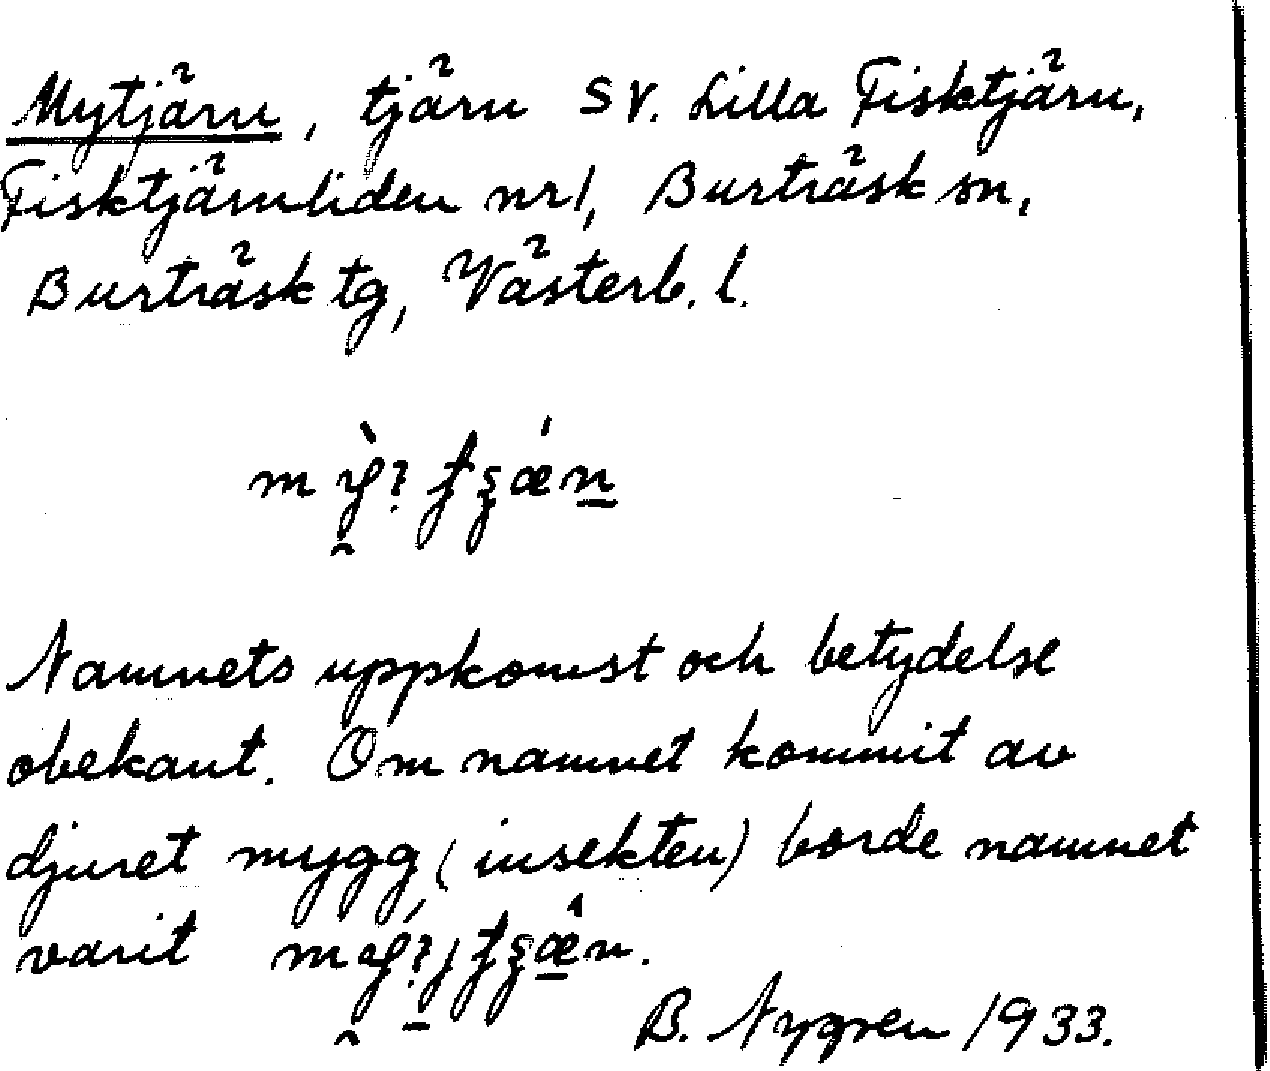 Mytjärn, tjärn SV. Lilla Fisktjärn,
Fisktjärnliden nr 1, Burträsk sn,
Burträsk tg, Västerb. l.
Namnets uppkomst och betydelse
obekant. Om namnet kommit av
djuret mygg (insekten) borde namnet
varit
B. Nygren 1933.